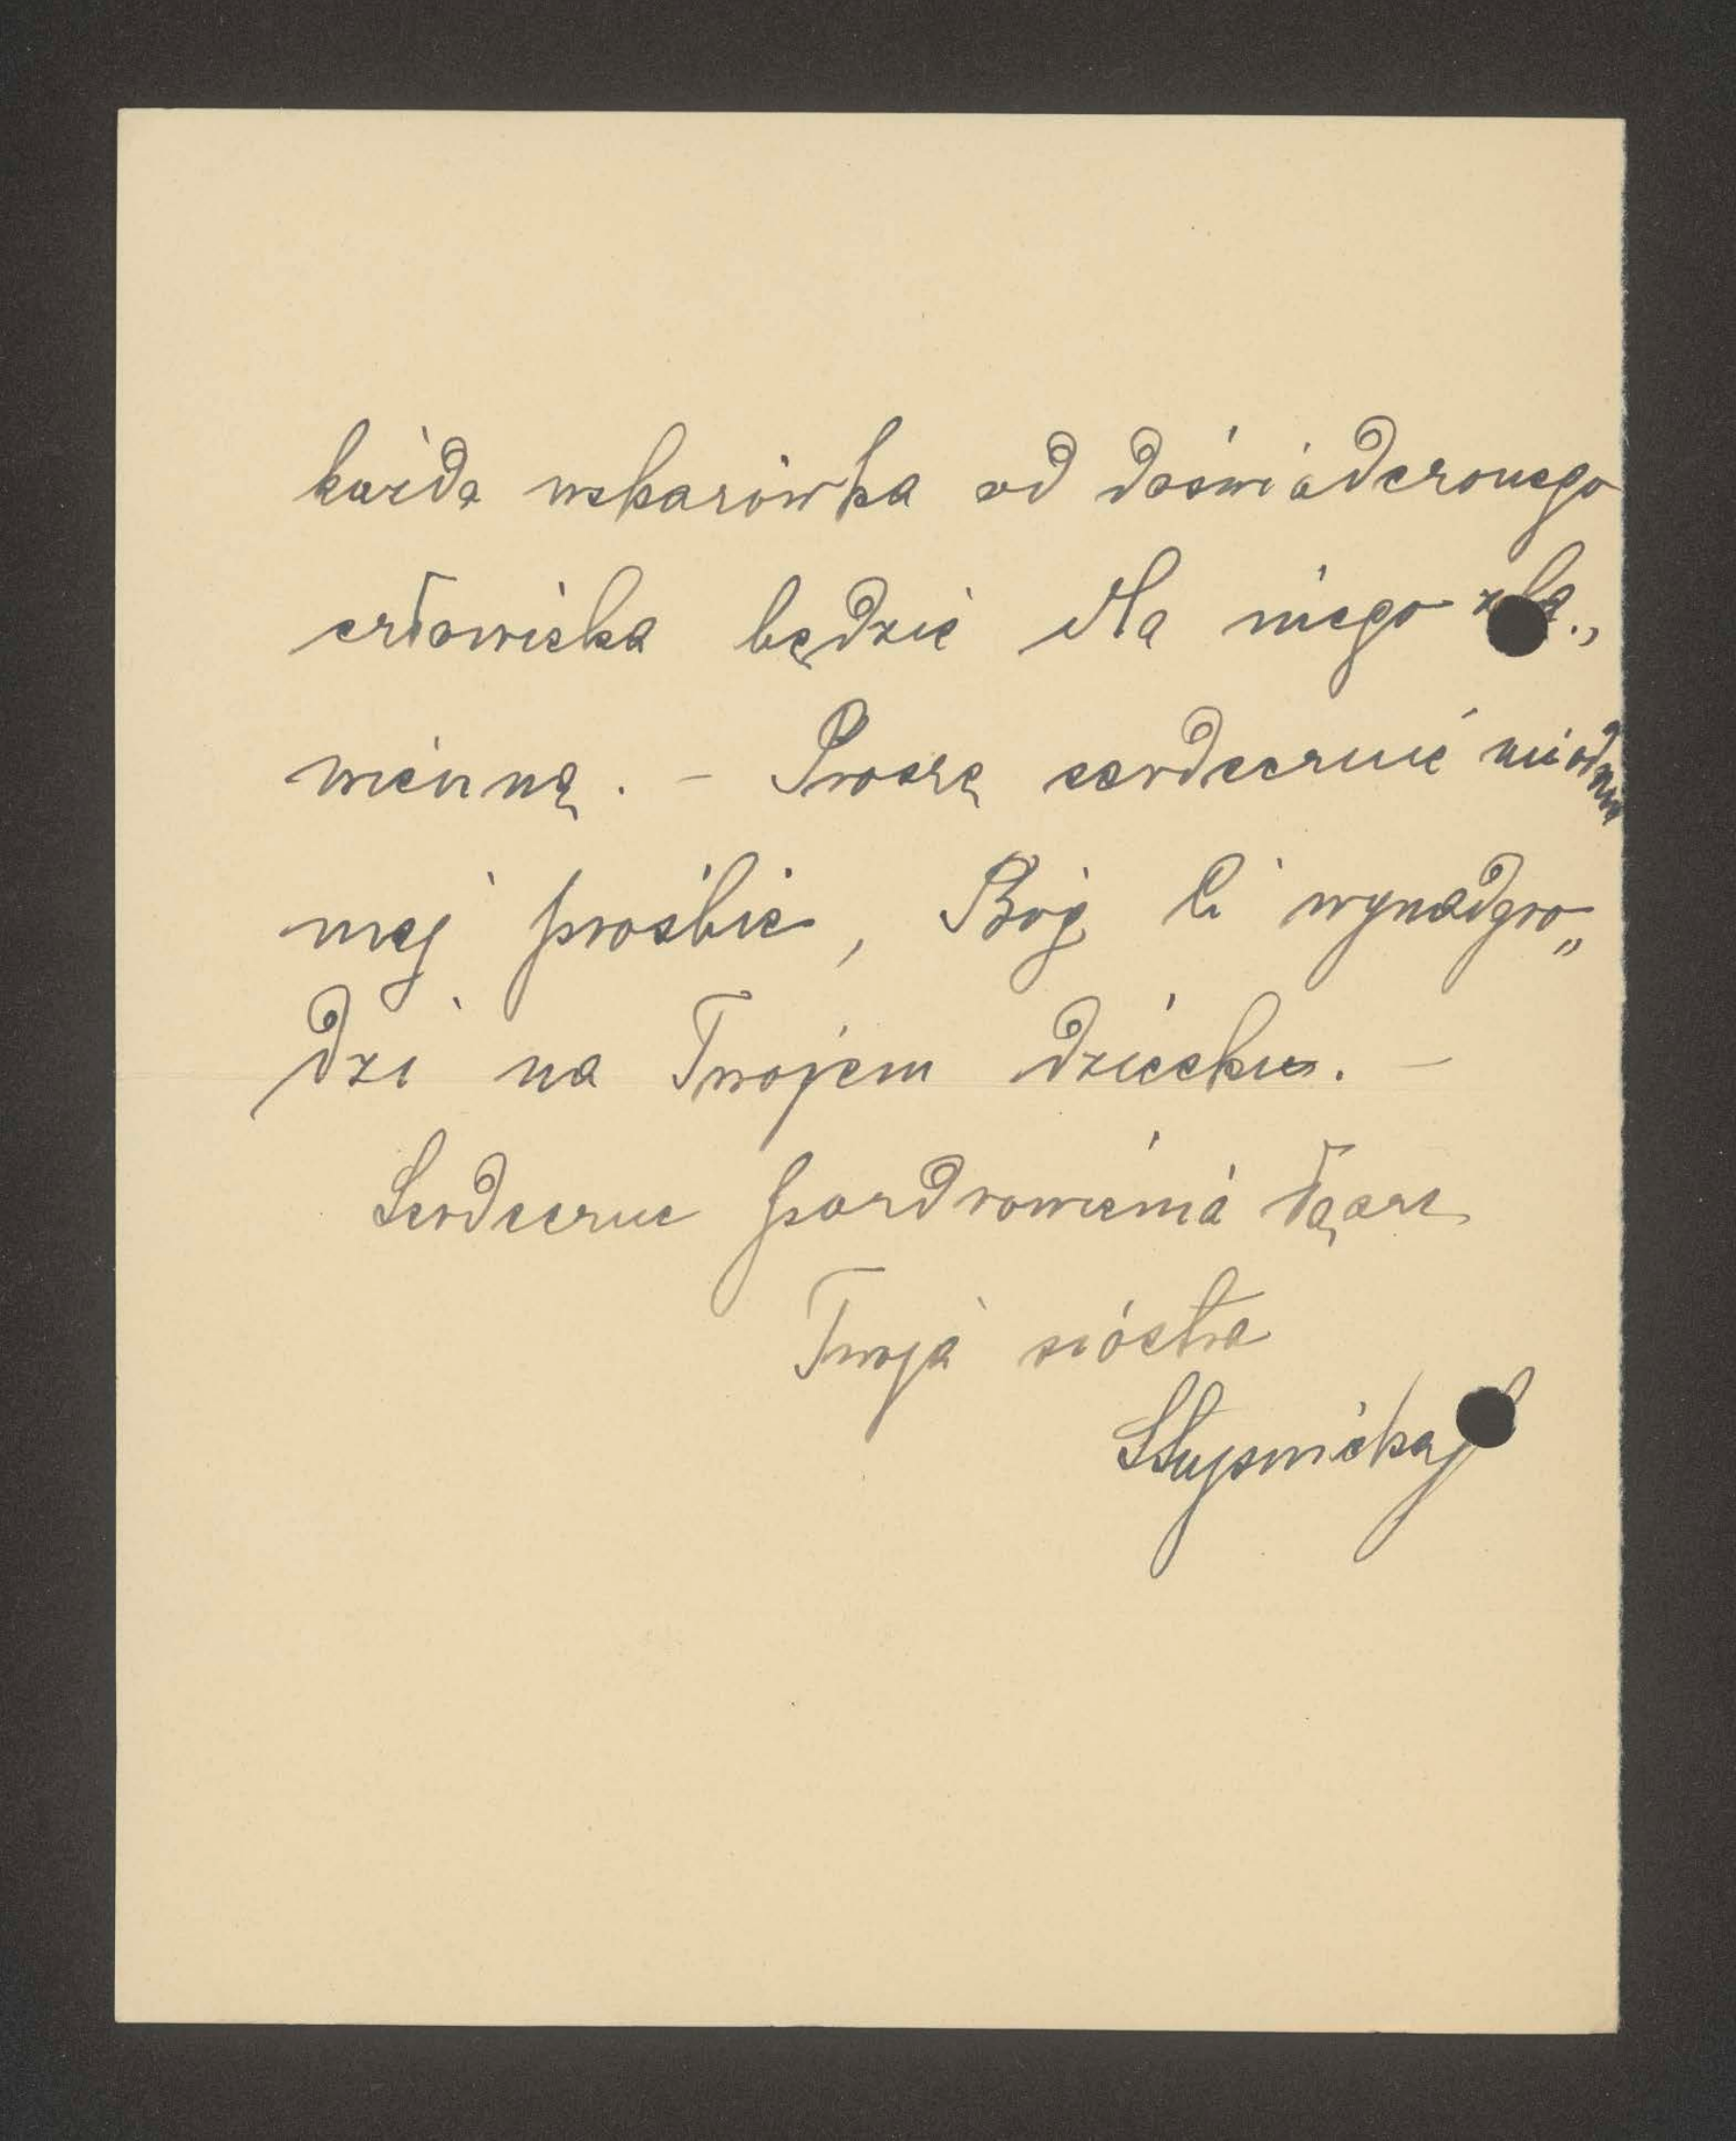 każda wskazówka od doświadczonego
człowieka będzie dla niego zba„
wienną. – Proszę serdecznie nie odmów
mej prośbie, Bóg Ci wynadgro„
dzi na Twojem dziecku. –
Serdeczne pozdrowienia łączę
Twoja siostra
Słupnicka